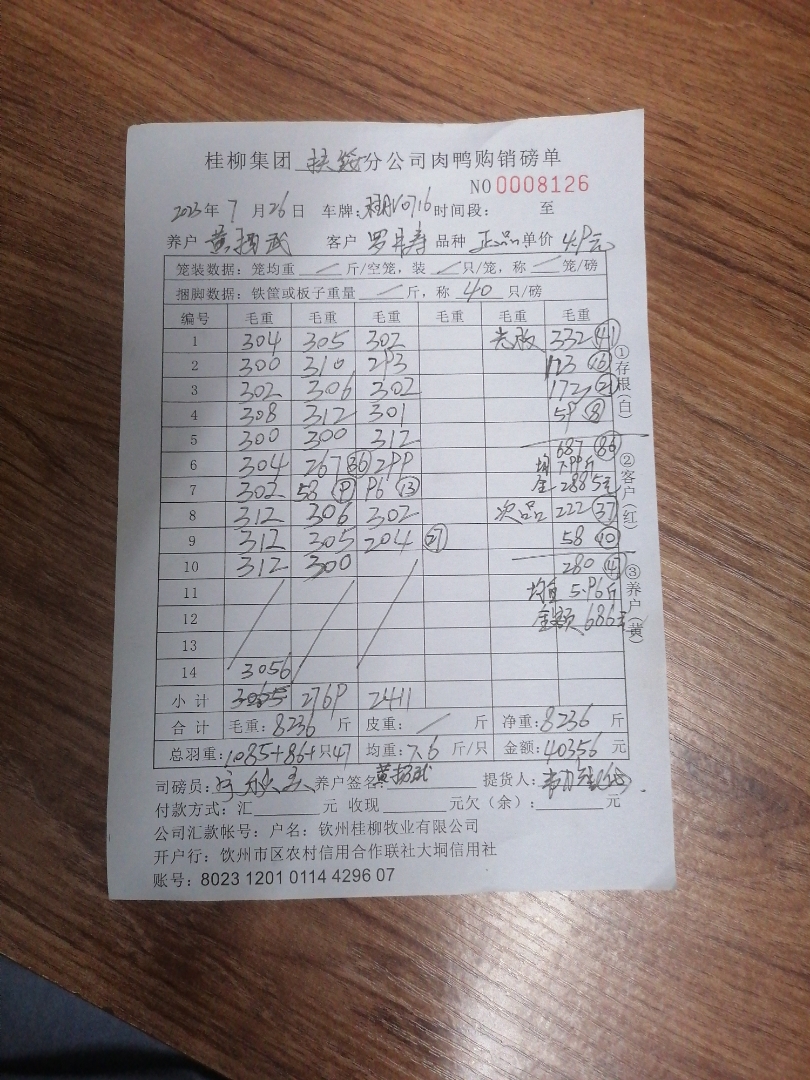 桂柳集团 扶绥分公司肉鸭购销磅单
NO 0008126
2023年 7 月 26 日 车牌: 0716 时间段: 至
养户 黄 武 客户 罗 寿 品种 正品 单价 4.9元
笼装数据: 笼均重 / 斤/空笼, 装 / 只/笼, 称 / 笼/磅
捆脚数据: 铁筐或板子重量 / 斤, 称 40 只/磅
编号 毛重 毛重 毛重 毛重 毛重 毛重
1 304 305 302 332 (41)
2 300 310 293 123 (16)
3 302 306 302 172 (21)
4 308 312 301 59 (8)
5 300 300 312
687 (86)
6 304 267 (36) 299 均 7.99斤
7 302 58 (9) 96 (13) 金 2885元
8 312 306 302 次品 222 (37)
9 312 305 204 (27) 58 (10)
10 312 300 280 (47)
11 均重 5.96斤
12 金额 686元
13
14 3056
小计 3065 2769 2411
合计 毛重: 8236 斤 皮重: / 斤 净重: 8236 斤
总羽重: 1085+86+只47 均重: 7.6 斤/只 金额: 40356 元
①存根(白)
②客户(红)
③养户(黄)
司磅员: 养户签名: 黄 武 提货人:
付款方式: 汇 元 收现 元欠(余): 元
公司汇款帐号: 户名: 钦州桂柳牧业有限公司
开户行: 钦州市区农村信用合作联社大垌信用社
账号: 8023 1201 0114 4296 07